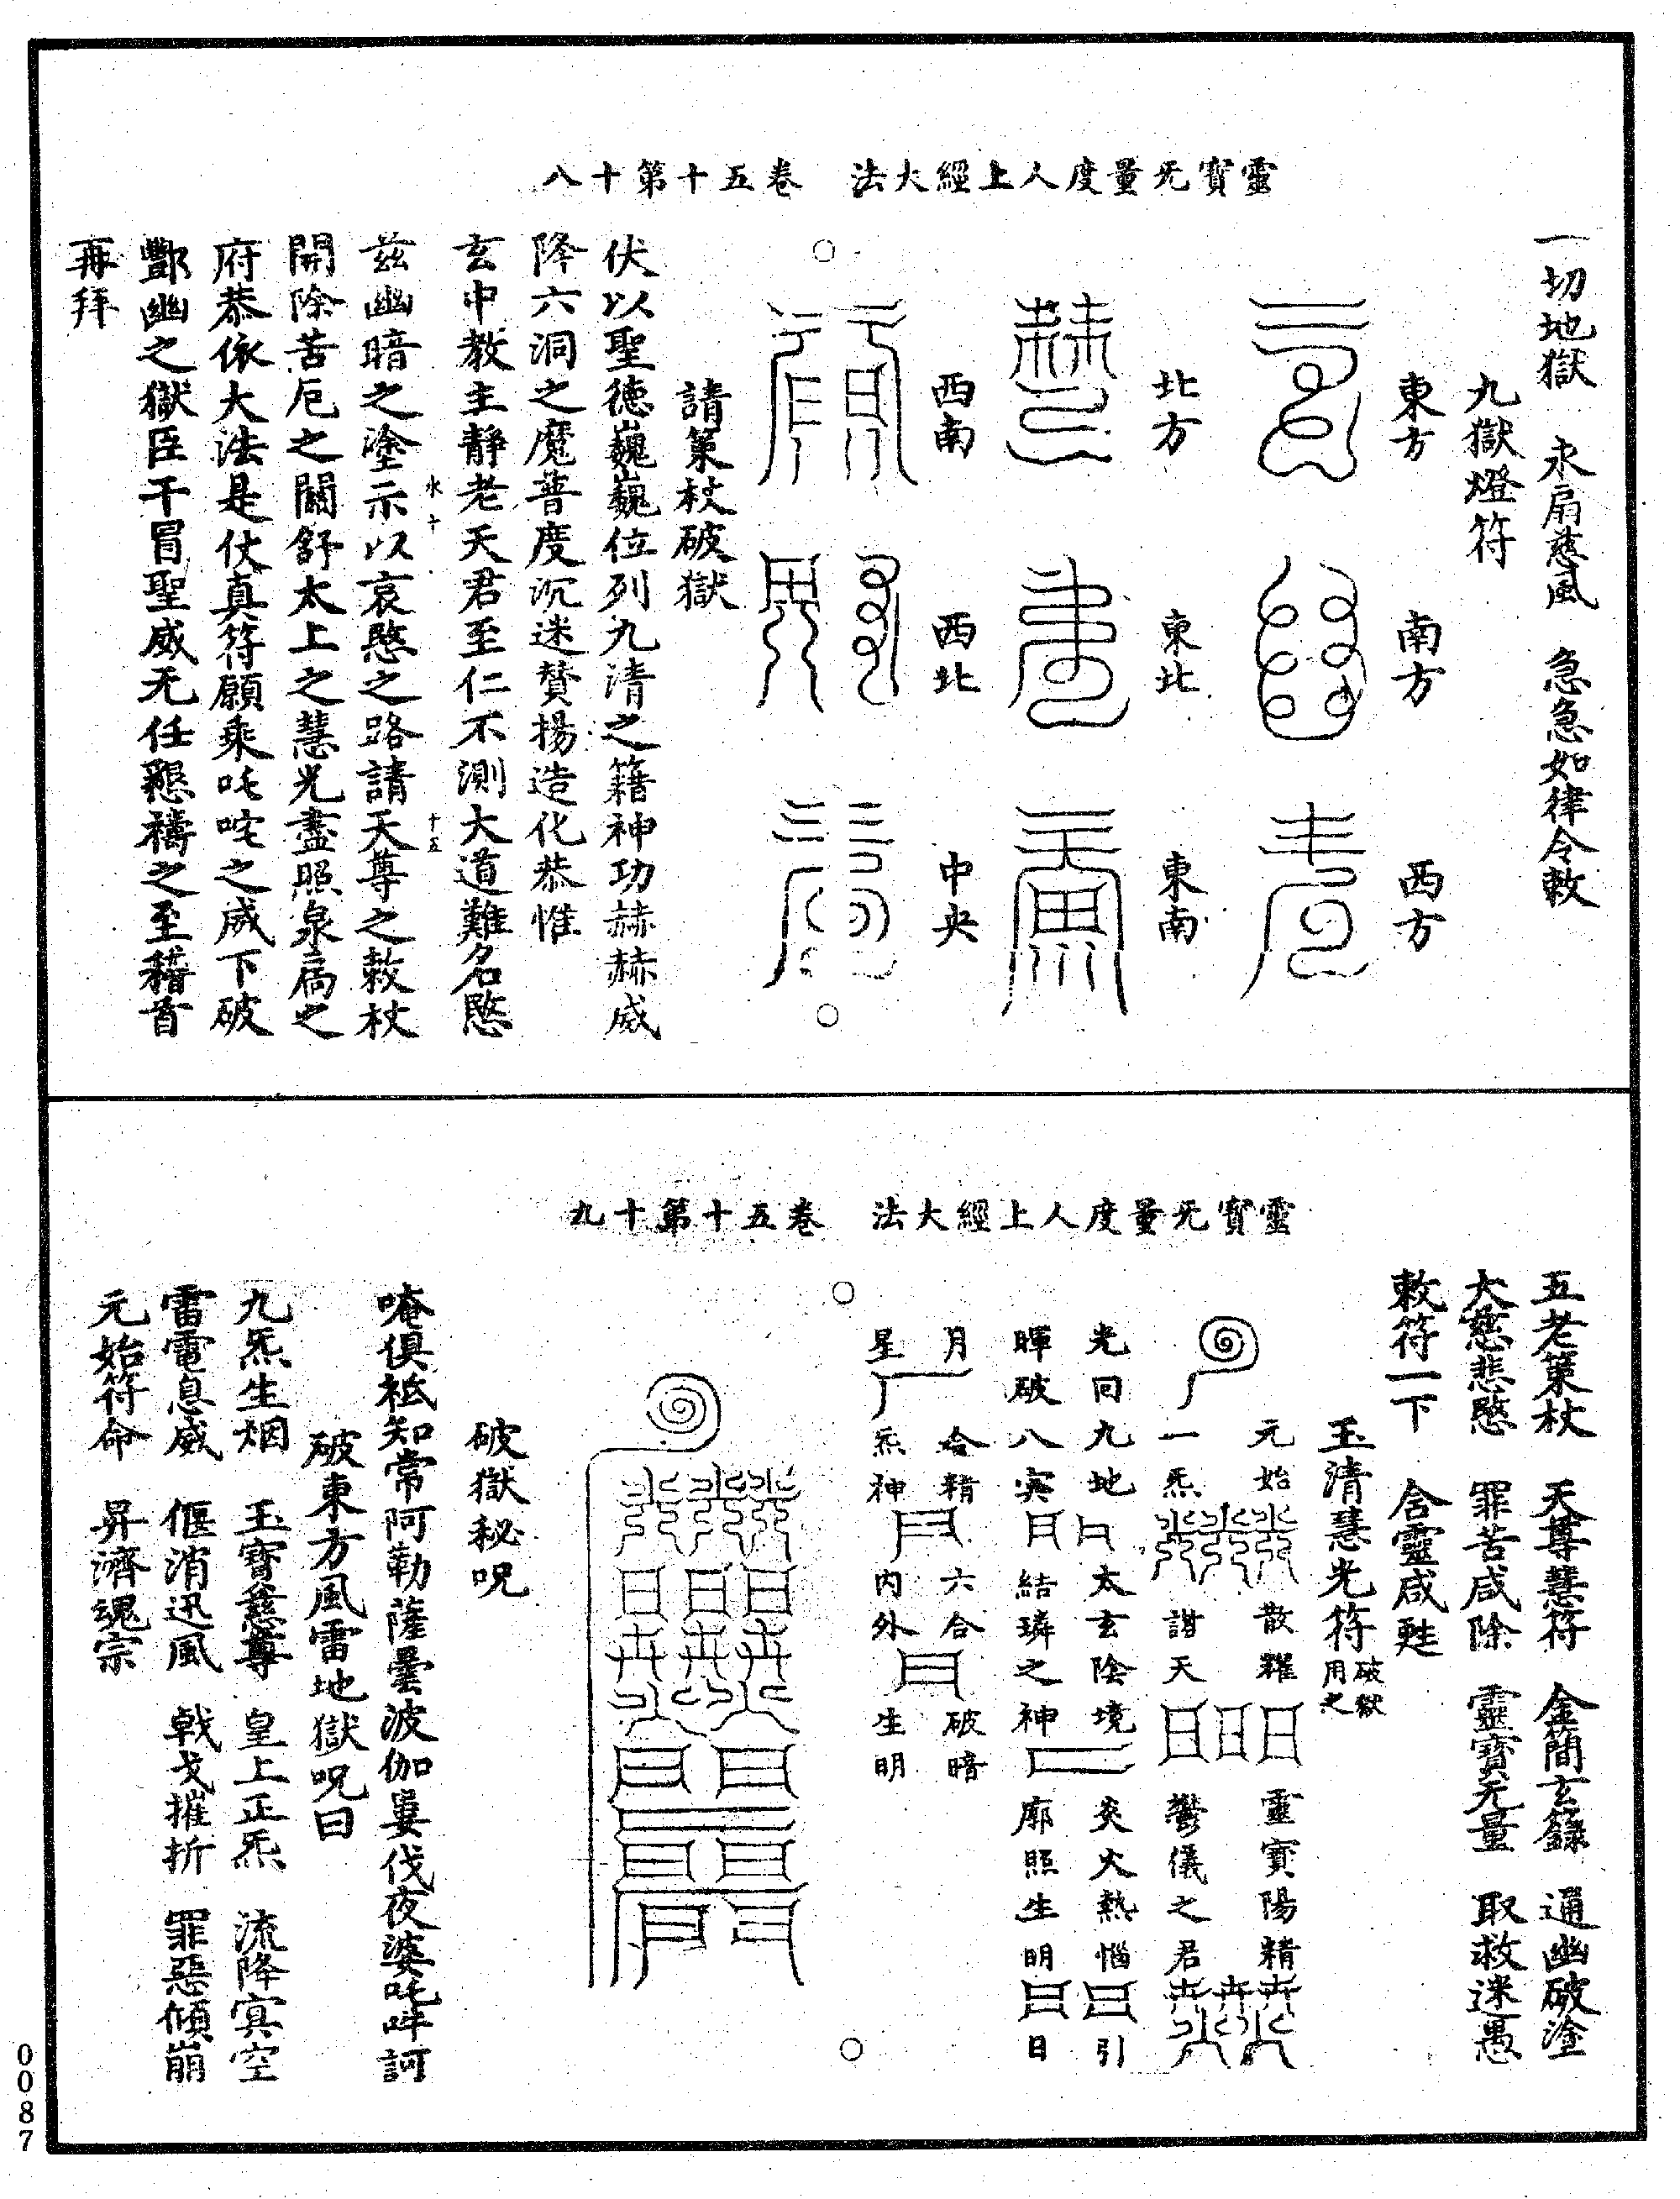 靈寶无量度人上經大法　卷五十第十八
一切地獄　永扃慈風　急急如律令敕
九獄燈符
東方　南方　西方
北方　東北　東南
西南　西北　中央
請策杖破獄
伏以聖德巍巍位列九清之籍神功赫赫威
降六洞之魔普度沉迷贊揚造化恭惟
玄中教主靜老天君至仁不測大道難名愍
茲幽暗之塗示以哀愍之路請天尊之敕杖
水十　十五
開除苦厄之關舒太上之慧光盡照泉扃之
府恭依大法是仗真符願乘吒咤之威下破
酆幽之獄臣干冒聖威无任懇禱之至稽首
再拜
靈寶无量度人上經大法　卷五十第十九
五老策杖　天尊慧符　金簡玄籙　通幽破塗
大慈悲愍　罪苦咸除　靈寶无量　取救迷愚
敕符一下　含靈咸甦
玉清慧光符破獄用之
元始　散耀　靈寶陽精
一炁　謝天　鬱儀之君
光回九地　太玄陰境　炎火熱惱　引
暉破八冥　結璘之神　廓照生明　日
月　合精　六合　破暗
星　炁神　內外　生明
破獄秘呪
唵俱祗知常阿勒薩曇波伽婁伐夜婆吒吽訶
破東方風雷地獄呪曰
九炁生烟　玉寶慈尊　皇上正炁　流降冥空
雷電息威　偃消迅風　戟戈摧折　罪惡傾崩
元始符命　昇濟魂宗
0087